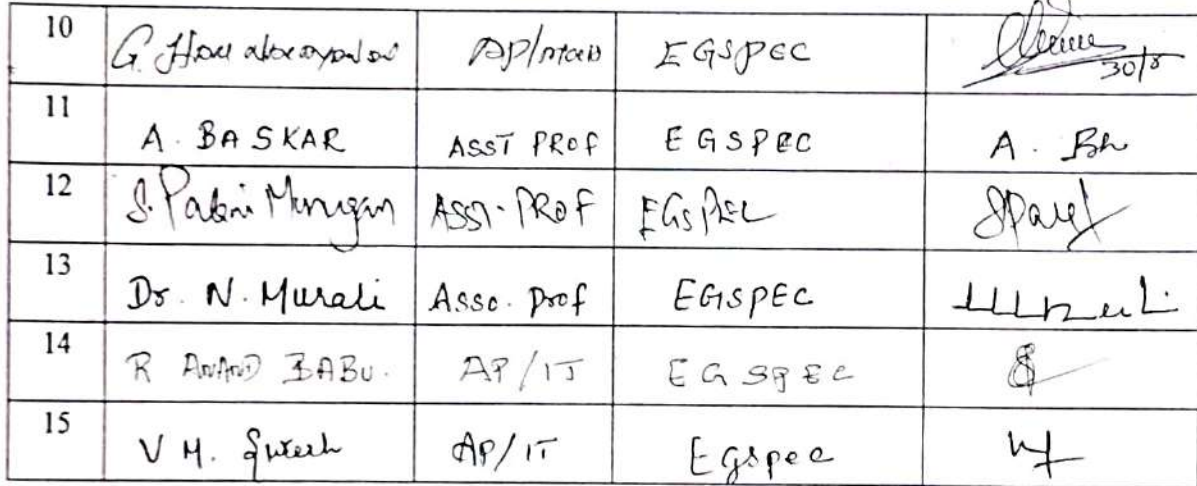 10 G. AP/ EGSPEC 30/8
11 A. BASKAR ASST PROF EGSPEC A. Bh
12 S. Palani Murugan ASST. PROF EGSPEC
13 Dr. N. Murali Asso. Prof EGSPEC
14 R ANAND BABU. AP/IT EGSPEC
15 V M. Suresh AP/IT Egspec